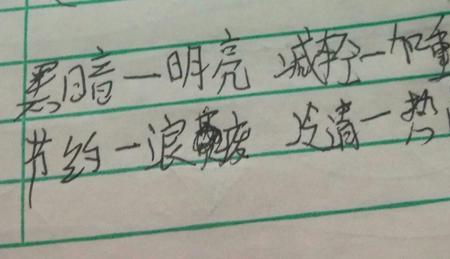 黑暗—明亮 减轻—加重
节约—浪废 冷清—热